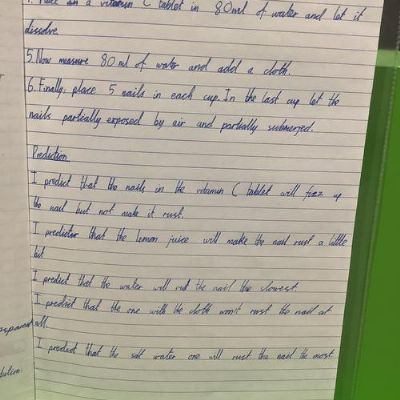 in a vitamin C tablet in 80ml of water and let it
dissolve.
5. Now measure 80 ml of water and add a cloth.
6. Finally, place 5 nails in each cup. In the last cup let the
nails partially exposed by air and partially submerged.
Prediction
I predict that the nails in the vitamin C tablet will fizz up
the nail but not make it rust.
I predict that the lemon juice will make the nail rust a little
bit
I predict that the water will rust the nail the slowest.
I predict that the one with the cloth won't rust the nail at
all.
I predict that the salt water one will rust the nail the most